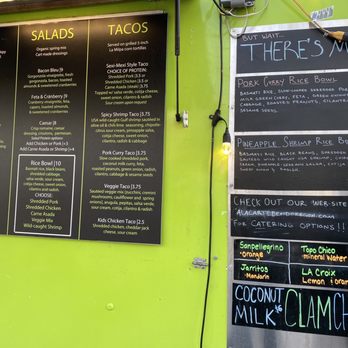 SALADS
Organic spring mix
Bacon Bleu |9
Gorgonzola vinaigrette, fresh
gorgonzola, bacon, toasted
almonds & sweetened cranberries
Feta & Cranberry |9
Cranberry vinaigrette, feta,
capers, toasted almonds &
sweetened cranberries
Caesar |8
Crisp romaine, caesar
dressing, croutons, parmesan
Salad Protein options
Add Chicken or Pork |+3
Add Carne Asada or Shrimp |+4
Rice Bowl |10
Basmati rice, black beans,
shredded cabbage,
salsa verde, sour cream,
cotija, cilantro & radish
CHOOSE:
Shredded Pork
Shredded Chicken
Carne Asada
Veggie Mix
Wild-caught Shrimp
TACOS
Served on grilled 5-inch
La Milpa corn tortillas
Sexi-Mexi Style Taco
CHOICE OF PROTEIN:
Shredded Pork |3.5 or
Shredded Chicken |3.5 or
Carne Asada (steak) |3.75
Topped w/ salsa verde, cotija cheese,
sweet onion, cilantro & radish
Sour cream upon request
Spicy Shrimp Taco |3.75
USA wild-caught Gulf shrimp sautéed in
olive oil & chile-lime seasoning, chipotle-
citrus sour cream, pineapple salsa,
cotija cheese, sweet onion,
cilantro, radish & cabbage
Pork Curry Taco |3.75
Slow cooked shredded pork,
coconut milk curry, feta,
toasted peanuts, green onion, sweet
cilantro, cabbage & sesame seeds
Veggie Taco |3.75
Sautéed veggie mix (zucchini, cremini
mushrooms, cauliflower and spring
onions), arugula, pepitas, salsa verde,
sour cream, cotija, cilantro & radish
Kids Chicken Taco |2.5
Shredded chicken, cheddar jack
cheese, sour cream
BUT WAIT...
THERE'S M
PORK CURRY RICE BOWL
BASMATI RICE, SLOW-COOKED SHREDDED PORK
MILK, GREEN CURRY, FETA, GREEN ONION
CABBAGE, ROASTED PEANUTS, CILANTRO
SESAME SEEDS
PINEAPPLE SHRIMP RICE BOW
BASMATI RICE, BLACK BEANS, SHREDDED
CHECK OUT OUR WEB-SITE
FOR CATERING OPTIONS!!
Sanpellegrino
- orange
Topo Chico
mineral Water
Jarritos
- Mandarin
LA Croix
Lemon
COCONUT
MILK
CLAM CH